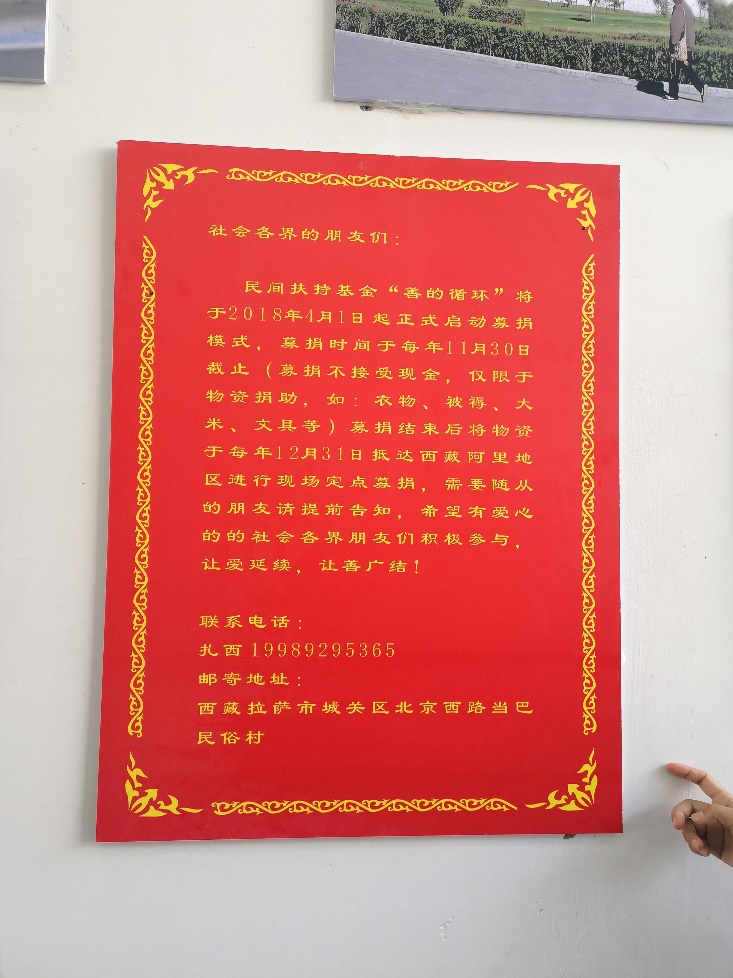 社会各界的朋友们：
民间扶持基金“善的循环”将
于2018年4月1日起正式启动募捐
模式，募捐时间于每年11月30日
截止（募捐不接受现金，仅限于
物资捐助，如：衣物、被褥、大
米、文具等）募捐结束后将物资
于每年12月31日抵达西藏阿里地
区进行现场定点募捐，需要随从
的朋友请提前告知，希望有爱心
的的社会各界朋友们积极参与，
让爱延续，让善广结！
联系电话：
扎西 19989295365
邮寄地址：
西藏拉萨市城关区北京西路当巴
民俗村